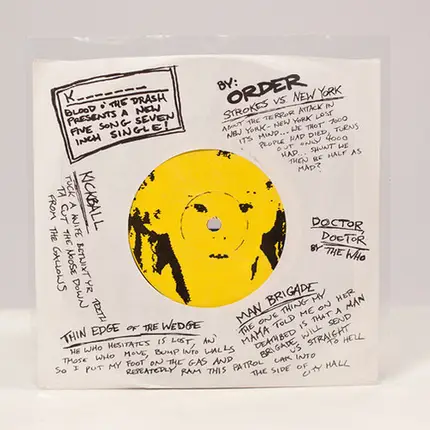 K_______
BLOOD O' THE DRASH
PRESENTS A NEW
FIVE SONG SEVEN
INCH SINGLE!
BY:
ORDER
STROKES VS. NEW YORK
ABOUT THE TERROR ATTACK IN
NEW YORK - NEW YORK LOST
IT'S MIND... WE THOT 7000
PEOPLE HAD DIED, TURNS
OUT ONLY 4000
HAD... SHUNT WE
THEN BE HALF AS
MAD?
KICKBALL
TUCK A KNIFE BETWIXT YR TEETH
TA CUT THE NOOSE DOWN
FROM THE GALLOWS
DOCTOR,
DOCTOR
BY THE WHO
MAN BRIGADE
THE ONE THING MY
MAMA TOLD ME ON HER
DEATHBED IS THAT A MAN
BRIGADE WILL SEND
US STRAIGHT TO HELL
THIN EDGE OF THE WEDGE
HE WHO HESITATES IS LOST, AN'
THOSE WHO MOVE, BUMP INTO WALLS
SO I PUT MY FOOT ON THE GAS AND
REPEATEDLY RAM THIS PATROL CAR INTO
THE SIDE OF
CITY HALL